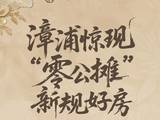 漳浦惊现
“零公摊”
新规好房